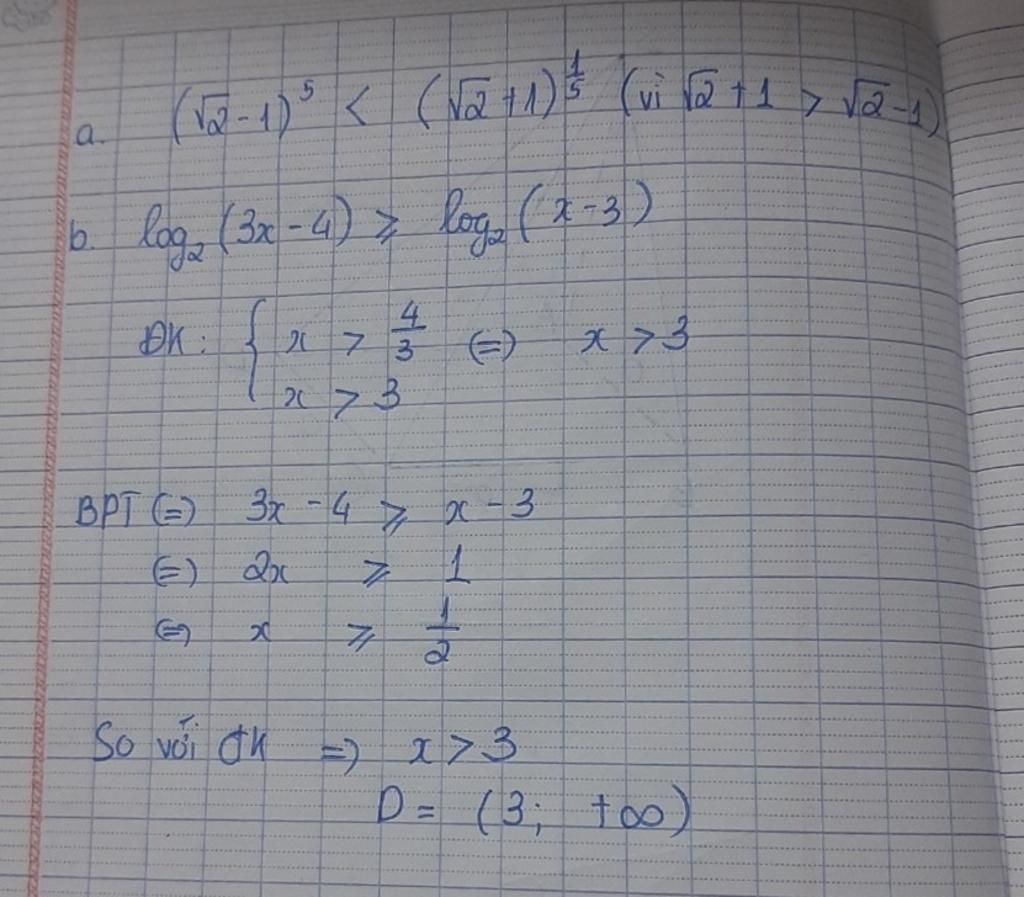 a. (√2 - 1)^5 < (√2 + 1)^(1/5) (vì √2 + 1 > √2 - 1)
b. log₂(3x - 4) ⩾ log₂(x - 3)
ĐK: { x > 4/3 (=) x > 3
x > 3
BPT (=) 3x - 4 ⩾ x - 3
(=) 2x ⩾ 1
(=) x ⩾ 1/2
So với đK =) x > 3
D = (3; +∞)